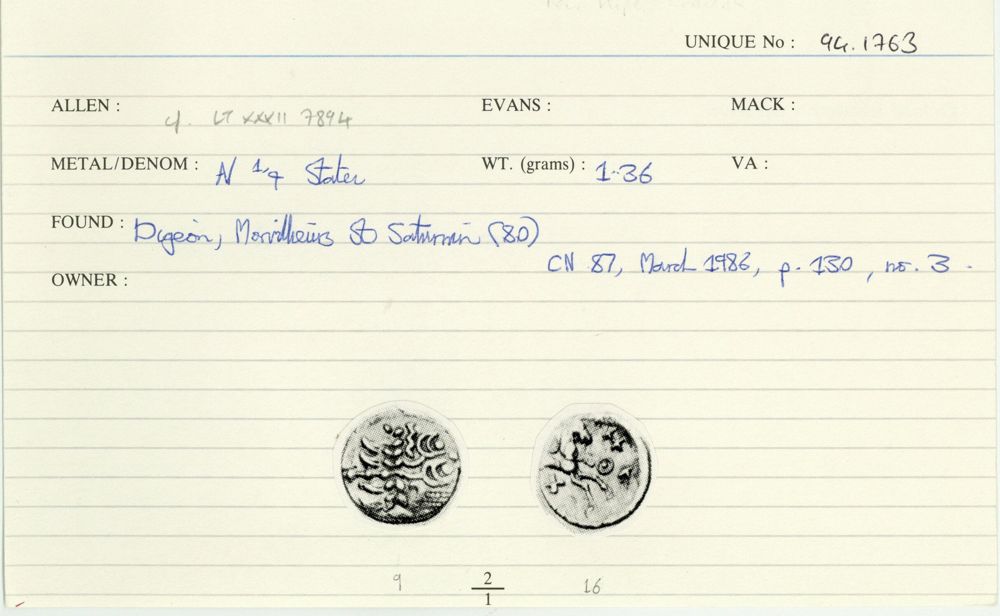 UNIQUE No : 94.1763
ALLEN : cf. LT XXXII 7894 EVANS : MACK :
METAL/DENOM : AV 1/4 Stater WT. (grams) : 1.36 VA :
FOUND : Digeon, Morvillers St Saturnin (80)
CN 87, March 1986, p. 130, no. 3.
OWNER :
9 2/1 16